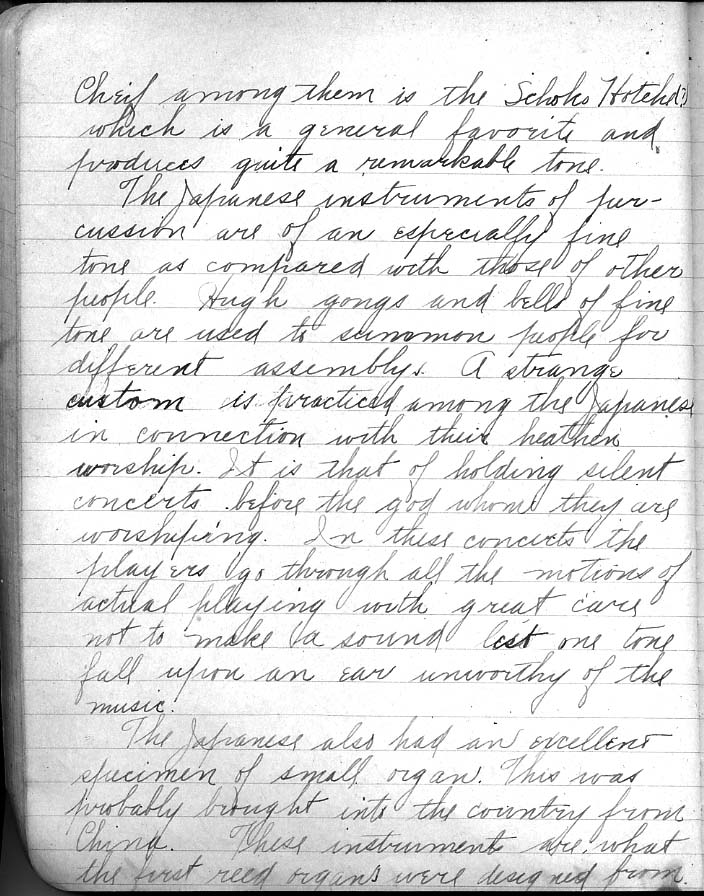 Cheif among them is the Schoks Hotehd(?)
which is a general favorite and
produces quite a remarkable tone.
The Japanese instruments of per-
cussion are of an especially fine
tone as compared with those of other
people. Hugh gongs and bells of fine
tone are used to summon people for
different assemblys. A strange
custom is practiced among the Japanese
in connection with their heathen
worship. It is that of holding silent
concerts before the god whom they are
worshiping. In these concerts the
players go through all the motions of
actual playing with great care
not to make a sound lest one tone
fall upon an ear unworthy of the
music.
The Japanese also had an excellent
specimen of small organ. This was
probably brought into the country from
China. These instruments are what
the first reed organs were designed from.